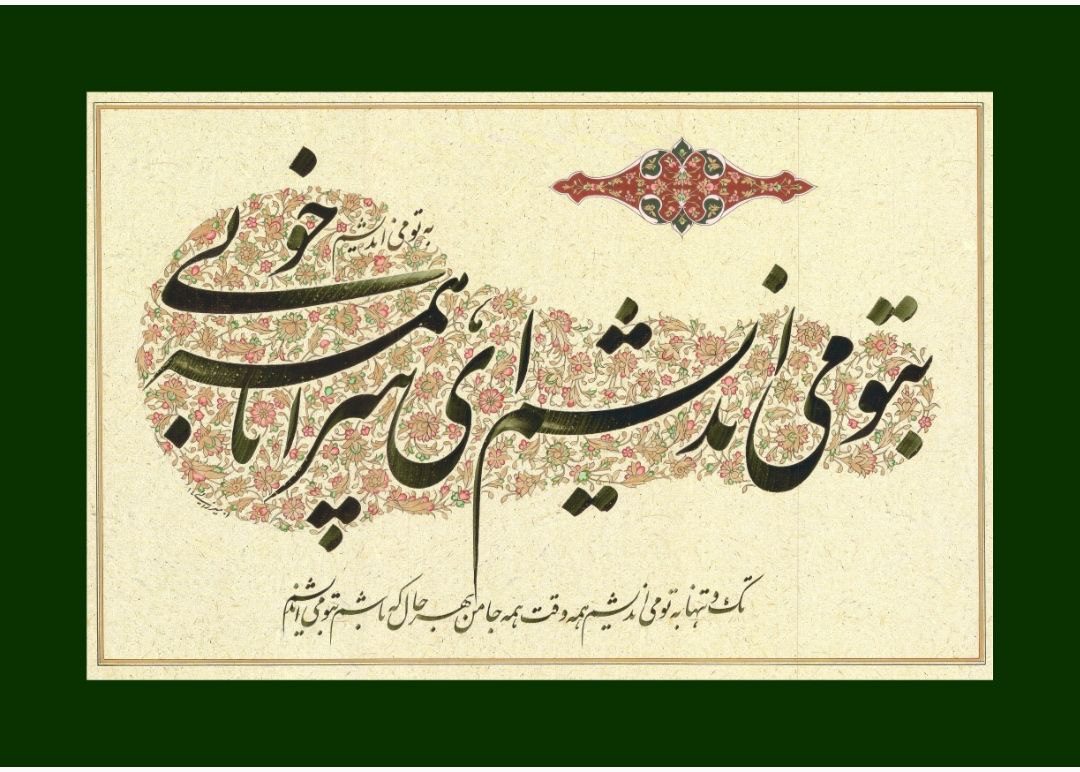 بتو می اندیشم ای سراپا همه خوبی
به تو می اندیشم
تک و تنها به تو می اندیشم همه وقت همه جا من بهر حال که باشم بتو می اندیشم